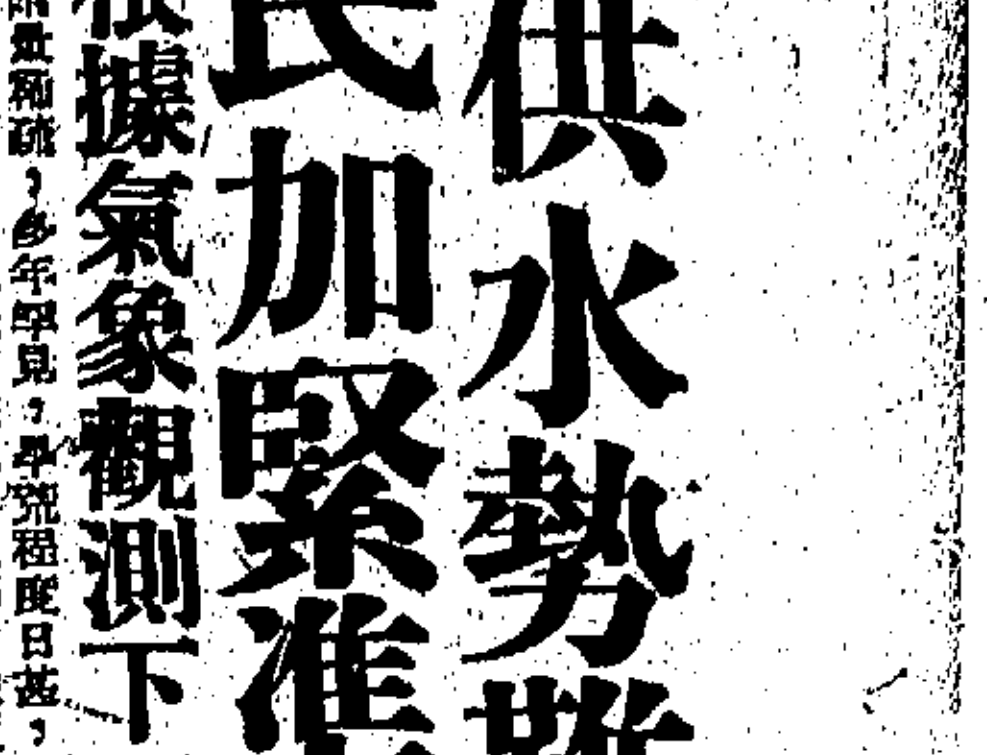 供水勢難
民加緊准
根據氣象觀測下
稀疏,多年罕見,旱荒程度日甚,